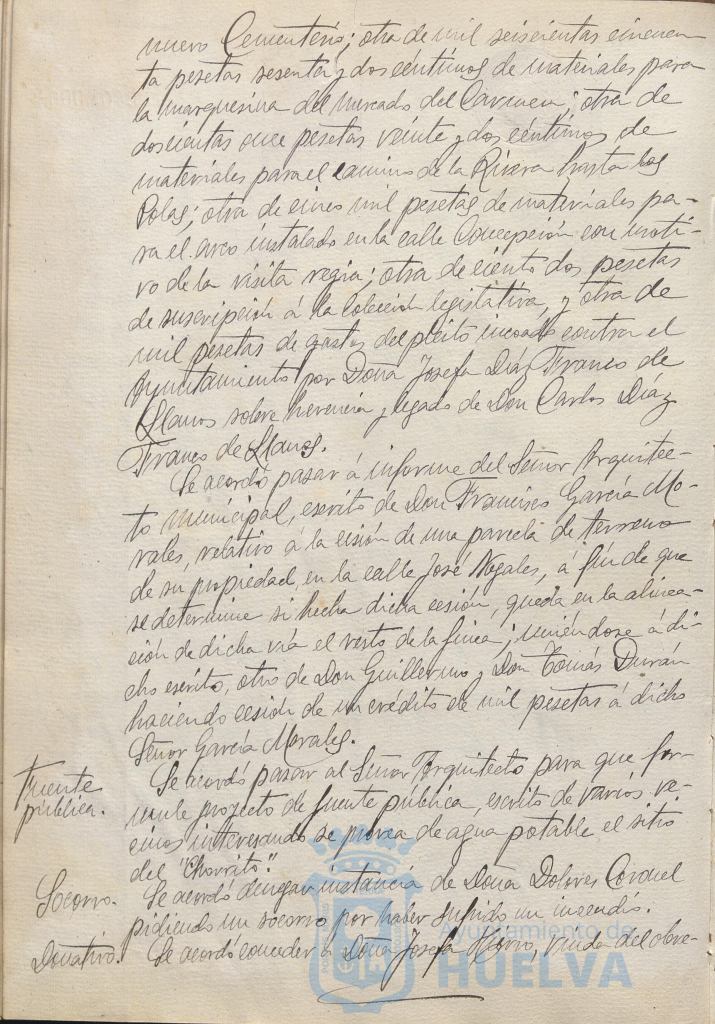 nuevo Cementerio; otra de mil seiscientas cincuen-
ta pesetas sesenta y dos céntimos de materiales para
la marquesina del mercado del Carmen; otra de
doscientas once pesetas veinte y dos céntimos de
materiales para el camino de la Rivera hasta las
Colas; otra de cinco mil pesetas de materiales pa-
ra el arco instalado en la calle Concepción con moti-
vo de la visita regia; otra de ciento dos pesetas
de suscripción á la colección legislativa, y otra de
mil pesetas de gastos del pleito incoado contra el
Ayuntamiento por Doña Josefa Díaz Franco de
Llanos sobre herencia y legado de Don Carlos Díaz
Franco de Llanos.
Se acordó pasar á informe del Señor Arquitec-
to municipal, escrito de Don Francisco García Mo-
rales, relativo á la cisión de una parcela de terreno
de su propiedad, en la calle José Nogales, á fin de que
se determine si hecha dicha cesión, queda en la alinea-
ción de dicha vía el resto de la finca; uniéndose á di-
cho escrito, otro de Don Guillermo y Don Tomás Durán
haciendo cesión de un crédito de mil pesetas á dicho
Señor García Morales.
Fuente
pública.
Se acordó pasar al Señor Arquitecto para que for-
mule proyecto de fuente pública, escrito de varios ve-
cinos interesando se provea de agua potable el sitio
del "Chorrito".
Socorro.
Se acordó denegar instancia de Doña Dolores Coronel
pidiendo un socorro por haber sufrido un incendio.
Donativo.
Se acordó conceder a Doña Josefa viuda del obre-
Ayuntamiento de
HUELVA